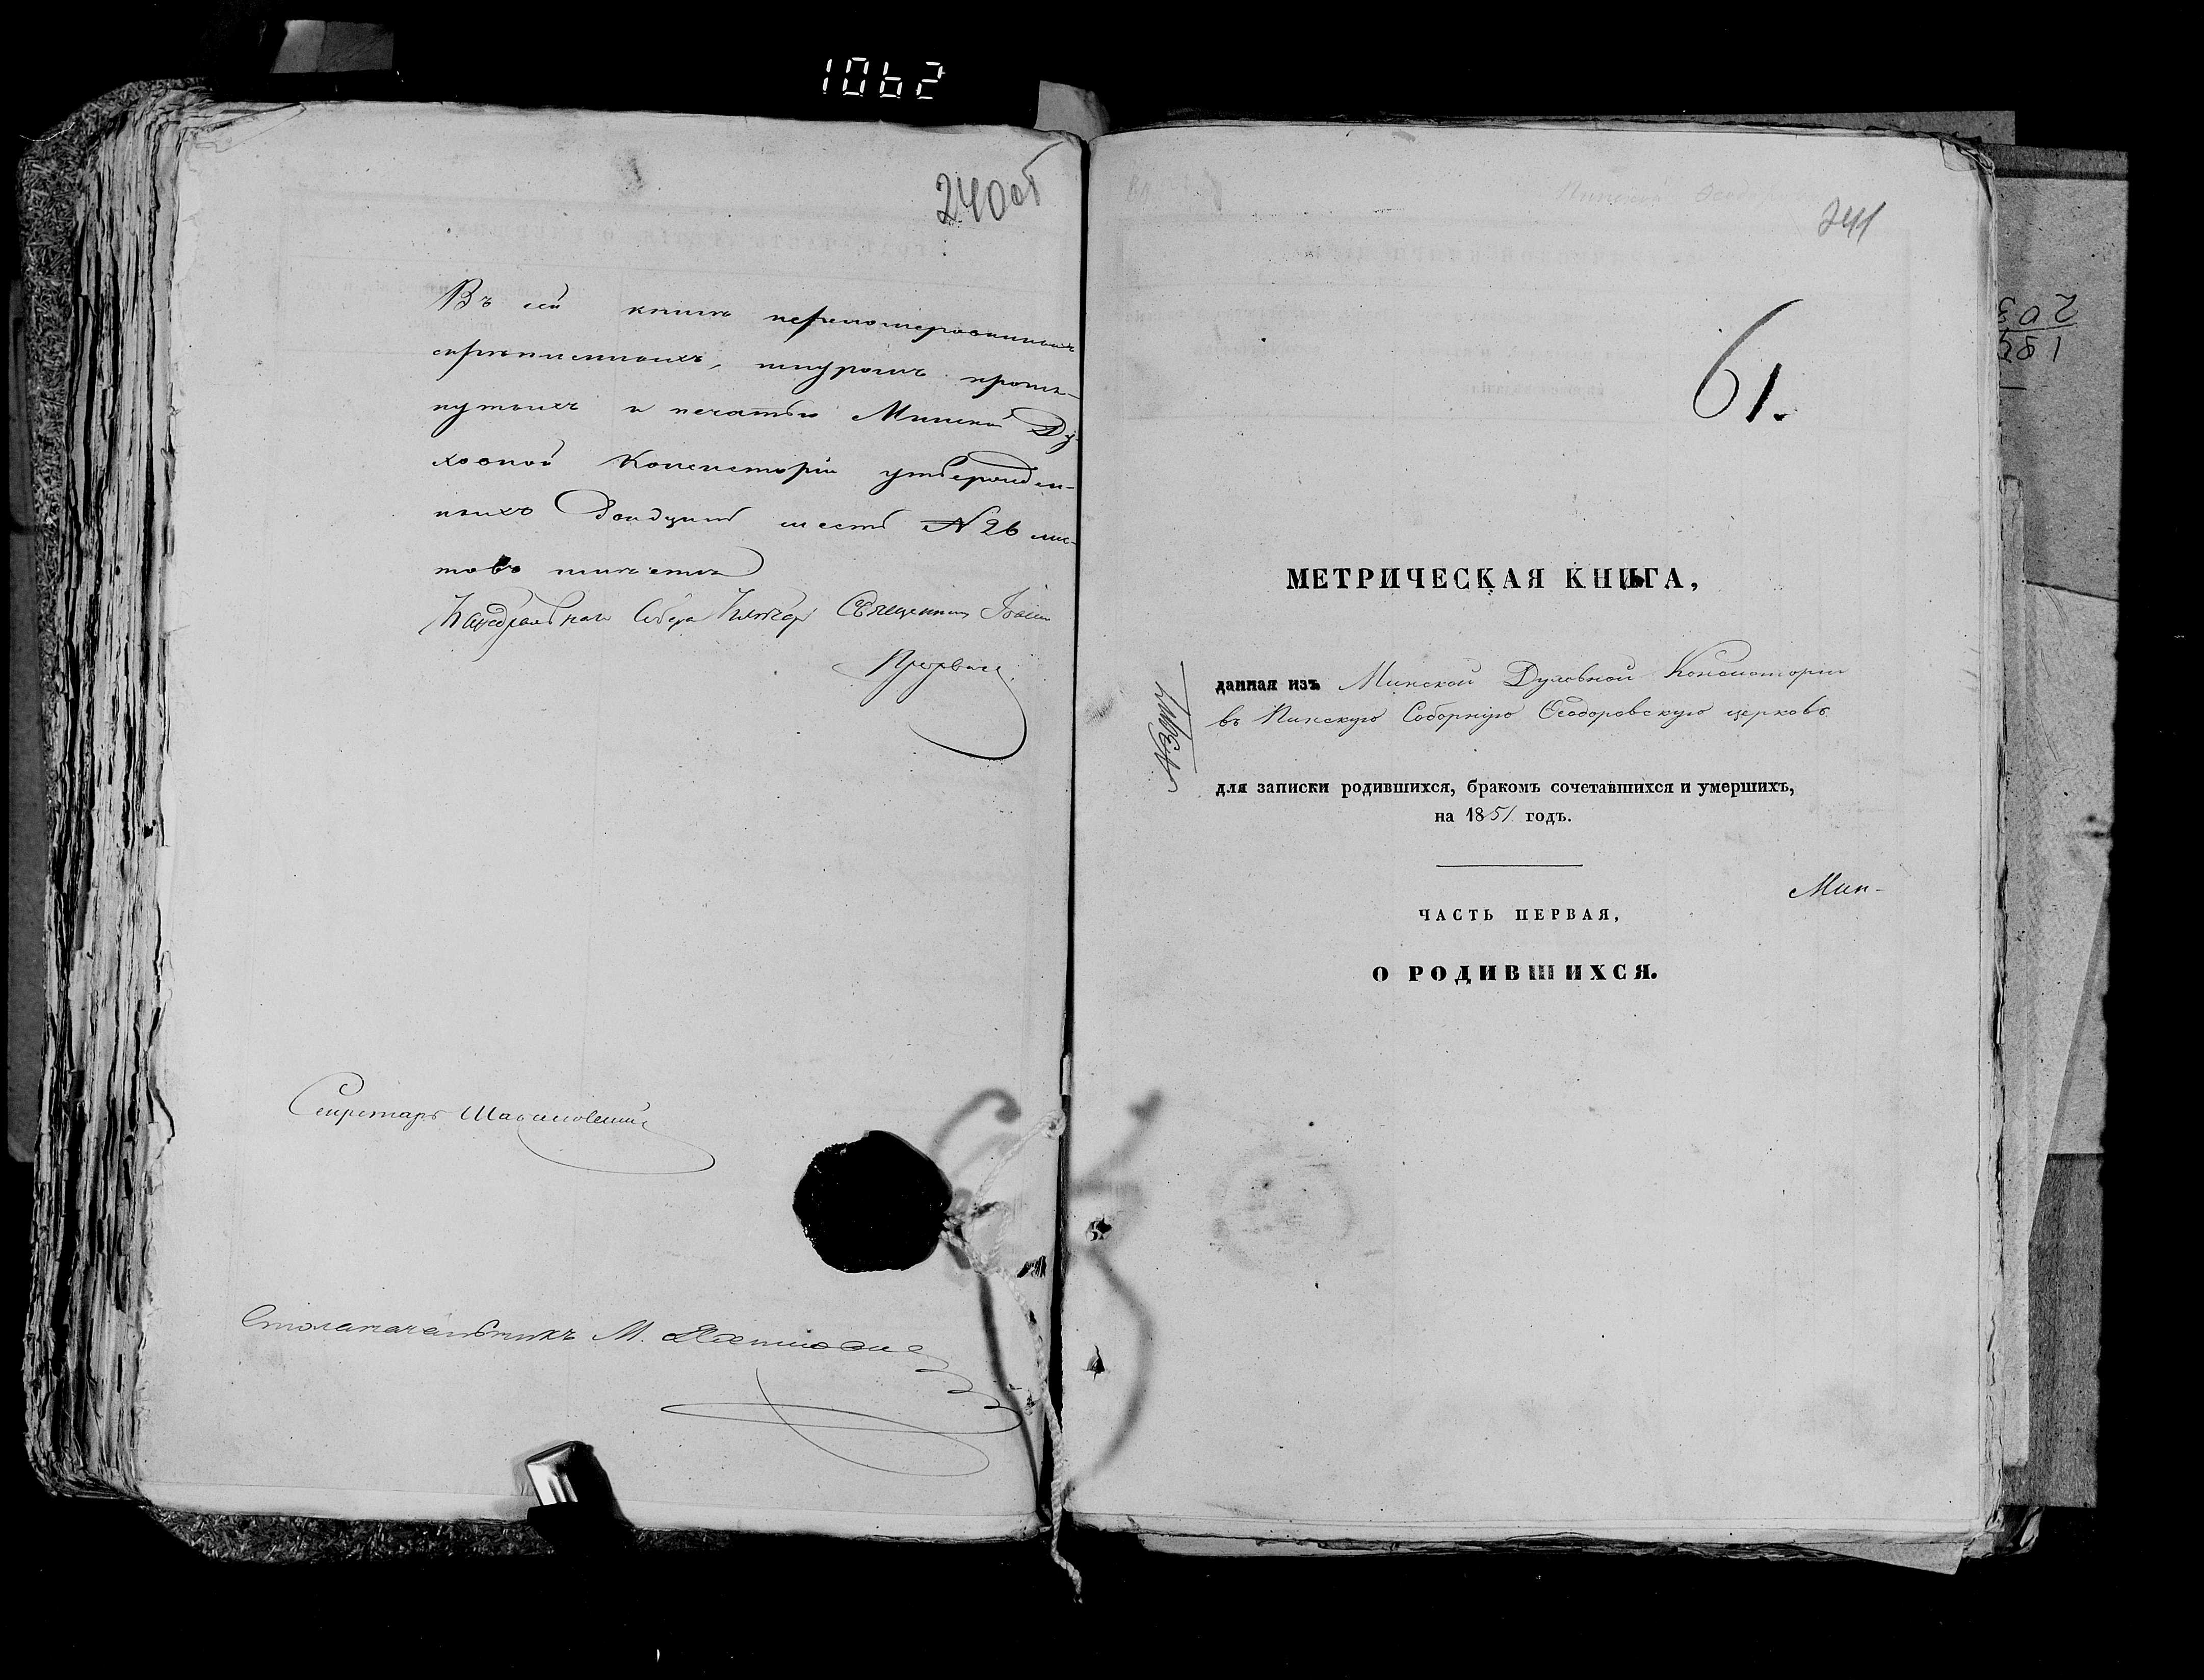 1062
240об
Въ сей книгѣ переномерованныхъ
скрѣпленныхъ, шнуромъ протя-
нутыхъ и печатью Минской Ду-
ховной Консисторіи утвержден-
ныхъ двадцать шесть № 26 лис-
товъ
Кафедральнаго Собора Ключарь Священникъ
Секретарь
Столоначальникъ М.
241
61.
МЕТРИЧЕСКАЯ КНИГА,
данная изъ Минской Духовной Консисторіи
въ Пинскую Соборную Ѳеодоровскую церковь
для записки родившихся, бракомъ сочетавшихся и умершихъ,
на 1851 годъ.
Мин-
ЧАСТЬ ПЕРВАЯ,
О РОДИВШИХСЯ.
203